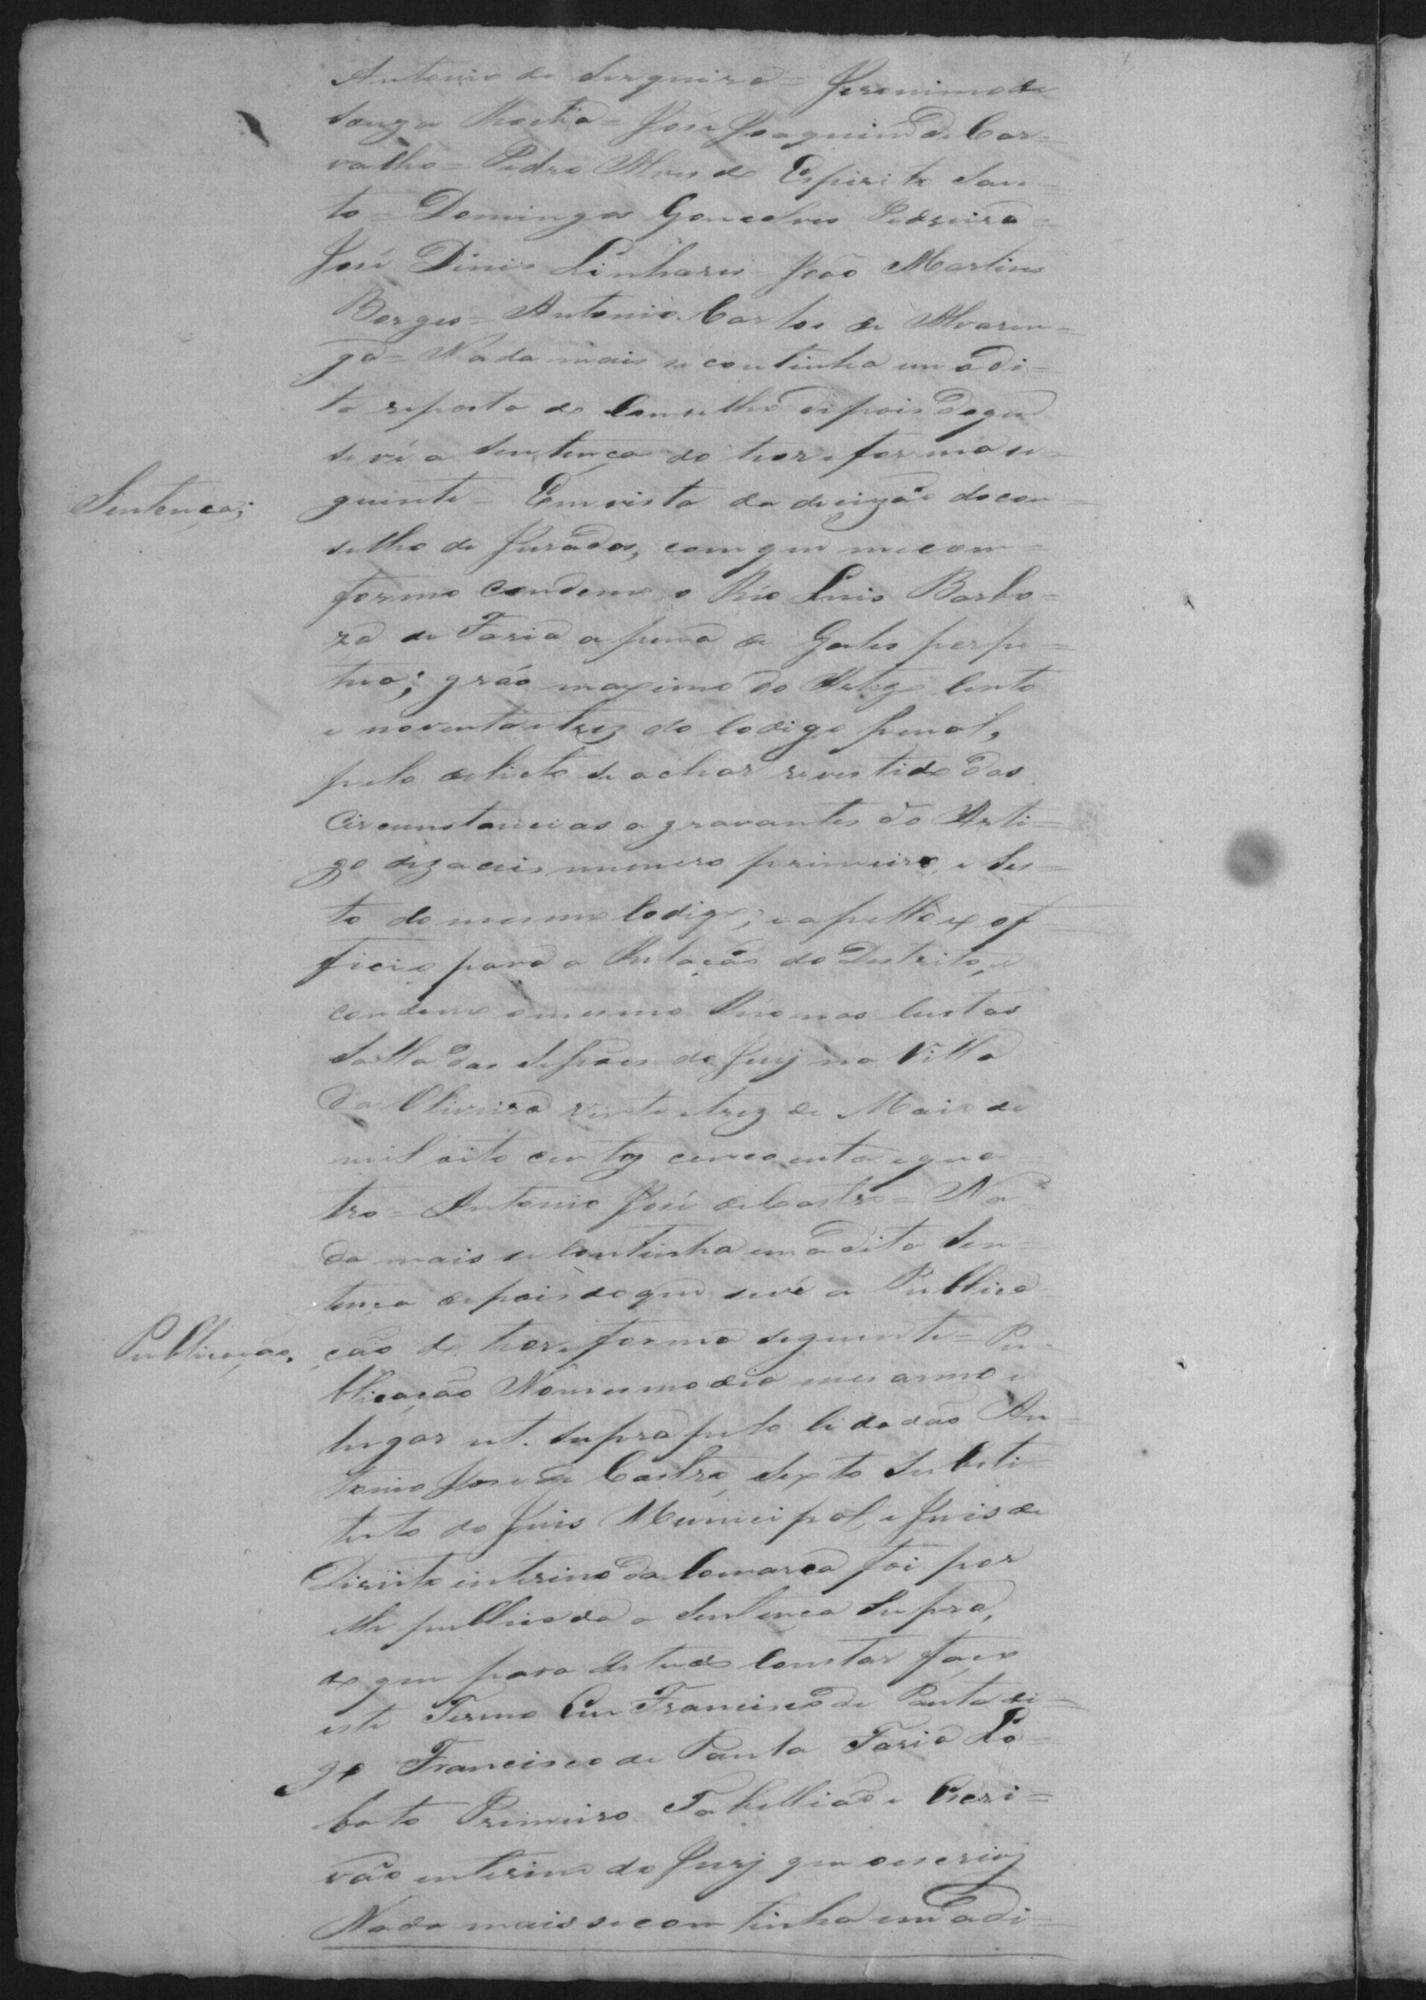 Antonio de Serqueira = Jeronimo de
Souza Rocha = José Joaquim de Car=
valho = Pedro Alves do Espirito San=
to = Domingos Gonçalves Pedreira =
José Dinis Linhares João Martins
Borges = Antonio Carlos de Alvaren=
ga = Nada mais se continha em a di=
ta resposta do Conselho depois do que
se vê a Sentença do theor e forma se=
Sentença;
guinte = Em vista da decizão do con=
selho de Jurados, com que me com=
formo condemno o Réo Luis Barbo=
za de Faria a pena de Galés perpe=
tua; gráo maximo do Artigo Cento
e noventa e trez do Codigo penal,
pelo delicto se achar revestido das
Circunstancias agravantes do Arti=
go dezaceis numero primeiro, e Seis=
to do mesmo Codigo; e apello ex of=
ficio para a Relação do Destrito, e
condemno o mesmo Réo nas Custas
Salla das Sessões do Jury na Villa
da Oliveira vinte e trez de Maio de
mil oito centos cincoenta e qua=
tro = Antonio José de Castro = Na=
da mais se Continha em a dita Sen=
tença depois do que se vê a Publica
Publicação.
ção do theor e forma seguinte = Pu=
blicação No mesmo dia mes anno e
lugar ut. supra pelo Cidadão An=
tonio José de Castro, Sexto Substi=
tuto do Juis Municipal, e Juis de
Direito interino da Comarca foi por
elle publicada a Sentença Supra,
do que para de tudo Constar faço
este Termo Eu Francisco de Paula di=
go Francisco de Paula Faria Lo=
bato Primeiro Tabellião e Escri=
vão interino do Jury que o escrevy
Nada mais se continha em a di=